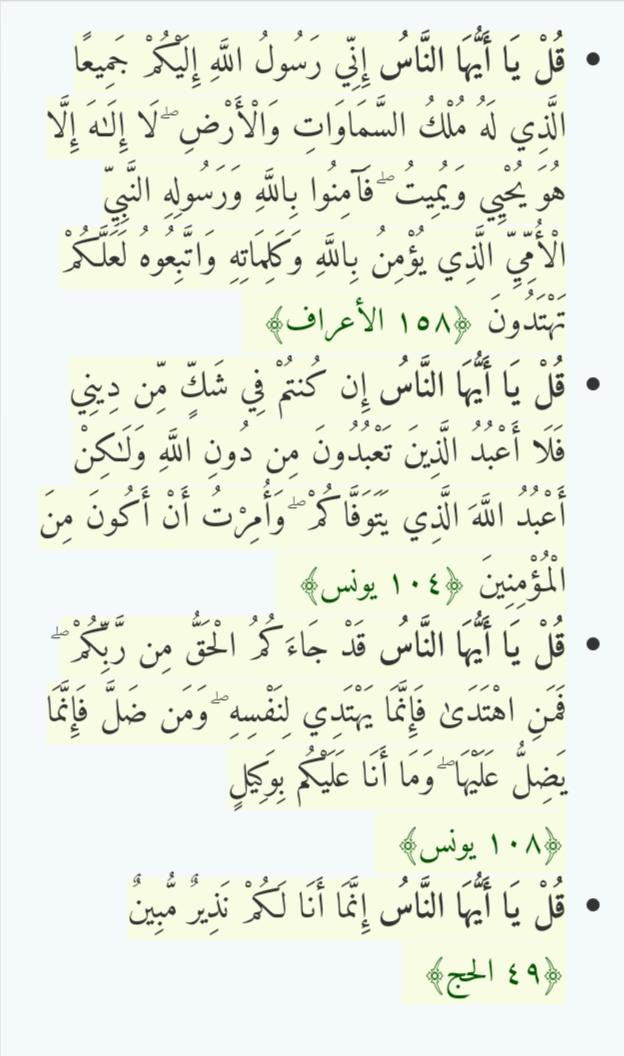 • قُلْ يَا أَيُّهَا النَّاسُ إِنِّي رَسُولُ اللَّهِ إِلَيْكُمْ جَمِيعًا
الَّذِي لَهُ مُلْكُ السَّمَاوَاتِ وَالْأَرْضِ ۖ لَا إِلَـٰهَ إِلَّا
هُوَ يُحْيِي وَيُمِيتُ ۖ فَآمِنُوا بِاللَّهِ وَرَسُولِهِ النَّبِيِّ
الْأُمِّيِّ الَّذِي يُؤْمِنُ بِاللَّهِ وَكَلِمَاتِهِ وَاتَّبِعُوهُ لَعَلَّكُمْ
تَهْتَدُونَ ﴿١٥٨ الأعراف﴾
• قُلْ يَا أَيُّهَا النَّاسُ إِن كُنتُمْ فِي شَكٍّ مِّن دِينِي
فَلَا أَعْبُدُ الَّذِينَ تَعْبُدُونَ مِن دُونِ اللَّهِ وَلَـٰكِنْ
أَعْبُدُ اللَّهَ الَّذِي يَتَوَفَّاكُمْ ۖ وَأُمِرْتُ أَنْ أَكُونَ مِنَ
الْمُؤْمِنِينَ ﴿١٠٤ يونس﴾
• قُلْ يَا أَيُّهَا النَّاسُ قَدْ جَاءَكُمُ الْحَقُّ مِن رَّبِّكُمْ ۖ
فَمَنِ اهْتَدَىٰ فَإِنَّمَا يَهْتَدِي لِنَفْسِهِ ۖ وَمَن ضَلَّ فَإِنَّمَا
يَضِلُّ عَلَيْهَا ۖ وَمَا أَنَا عَلَيْكُم بِوَكِيلٍ
﴿١٠٨ يونس﴾
• قُلْ يَا أَيُّهَا النَّاسُ إِنَّمَا أَنَا لَكُمْ نَذِيرٌ مُّبِينٌ
﴿٤٩ الحج﴾